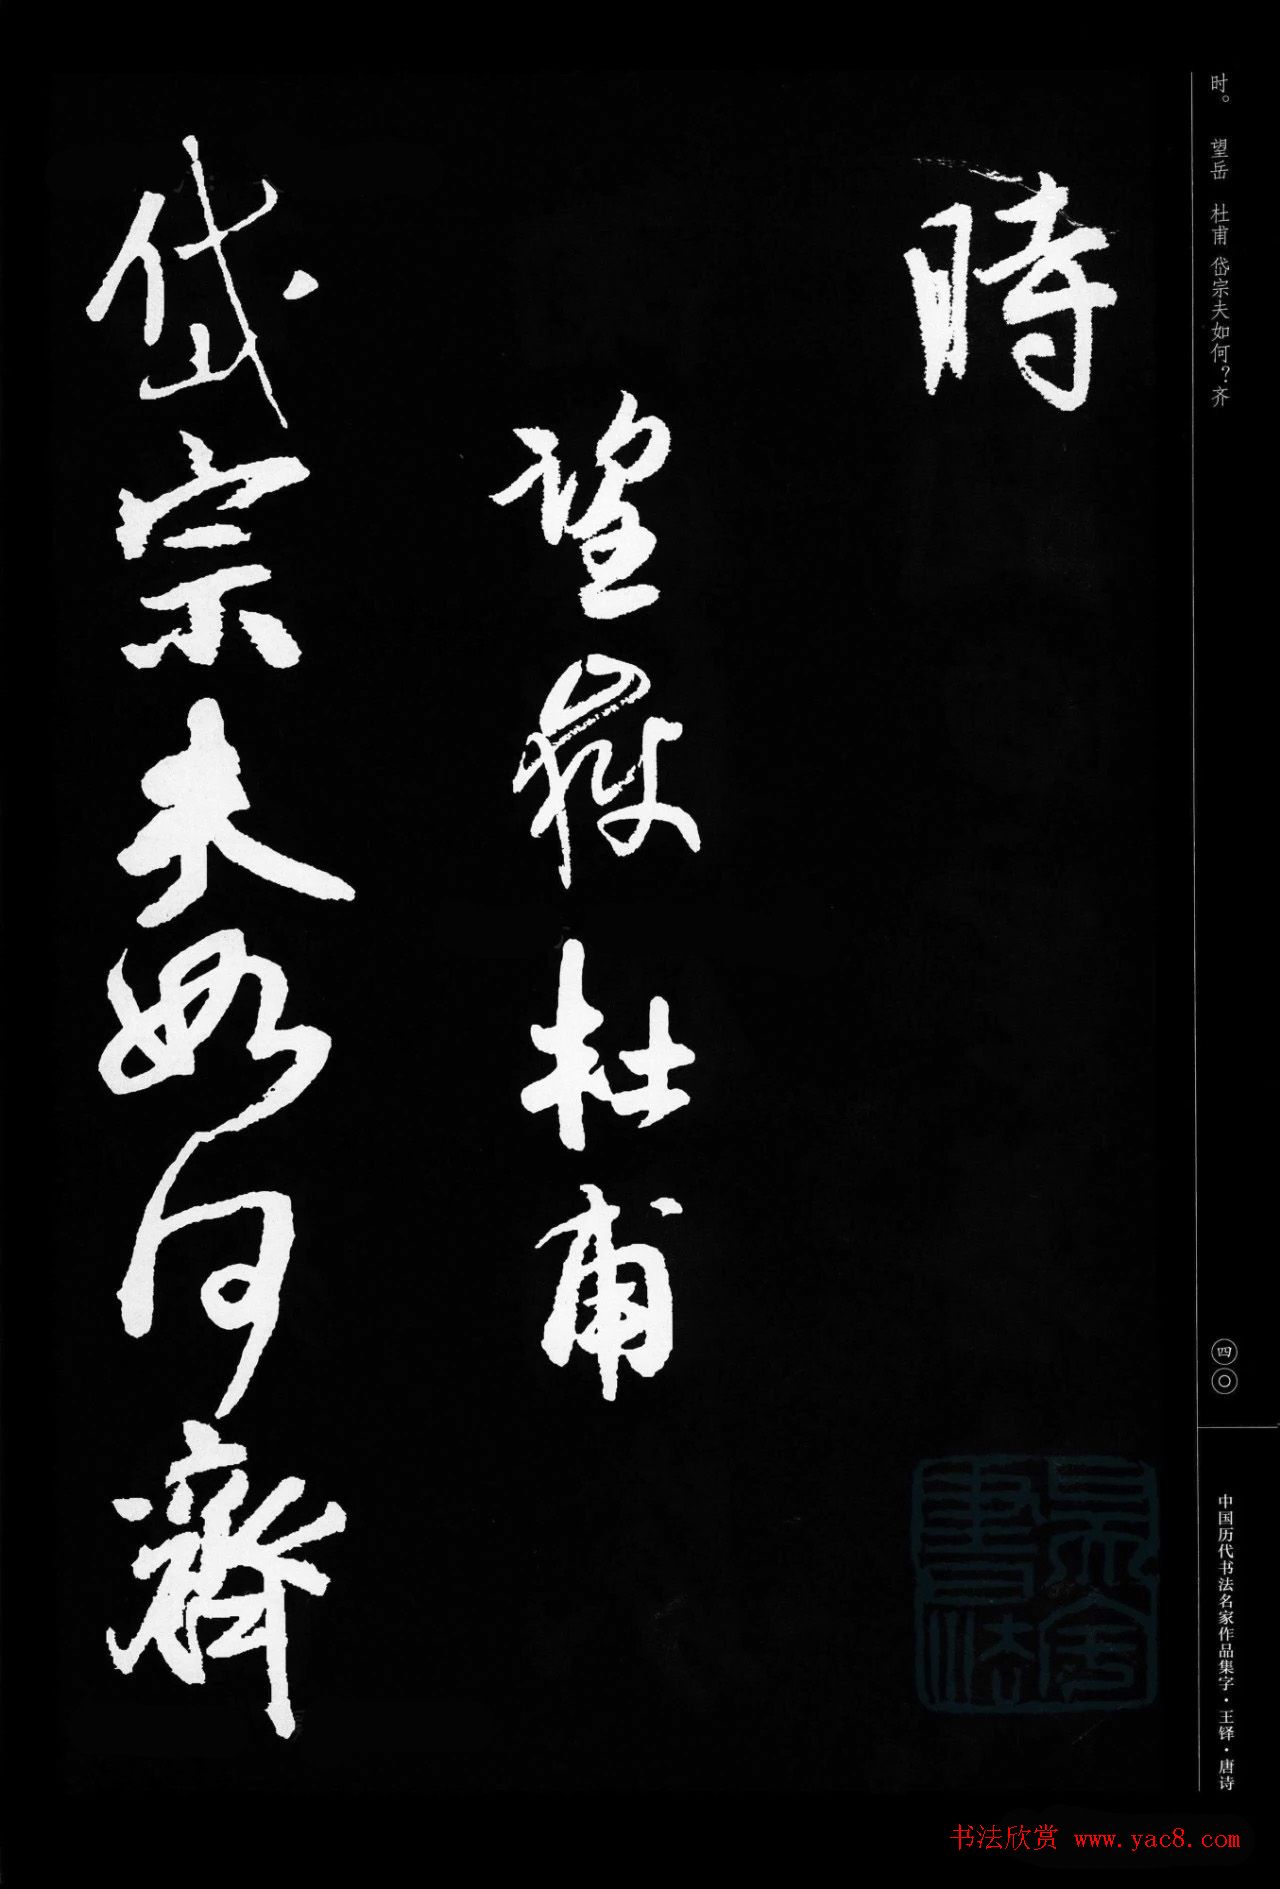 时。 望岳 杜甫 岱宗夫如何？齐
時
望嶽杜甫
岱宗夫如何齊
四〇
中国历代书法名家作品集字·王铎·唐诗
書法
书法欣赏 www.yac8.com